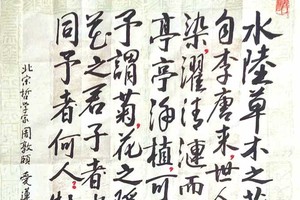 水陸草木之花
自李唐来世人
染濯清漣而
亭亭净植可
予謂菊花之
花之君子者
同予者何人
北宋哲学家周敦頤 愛蓮